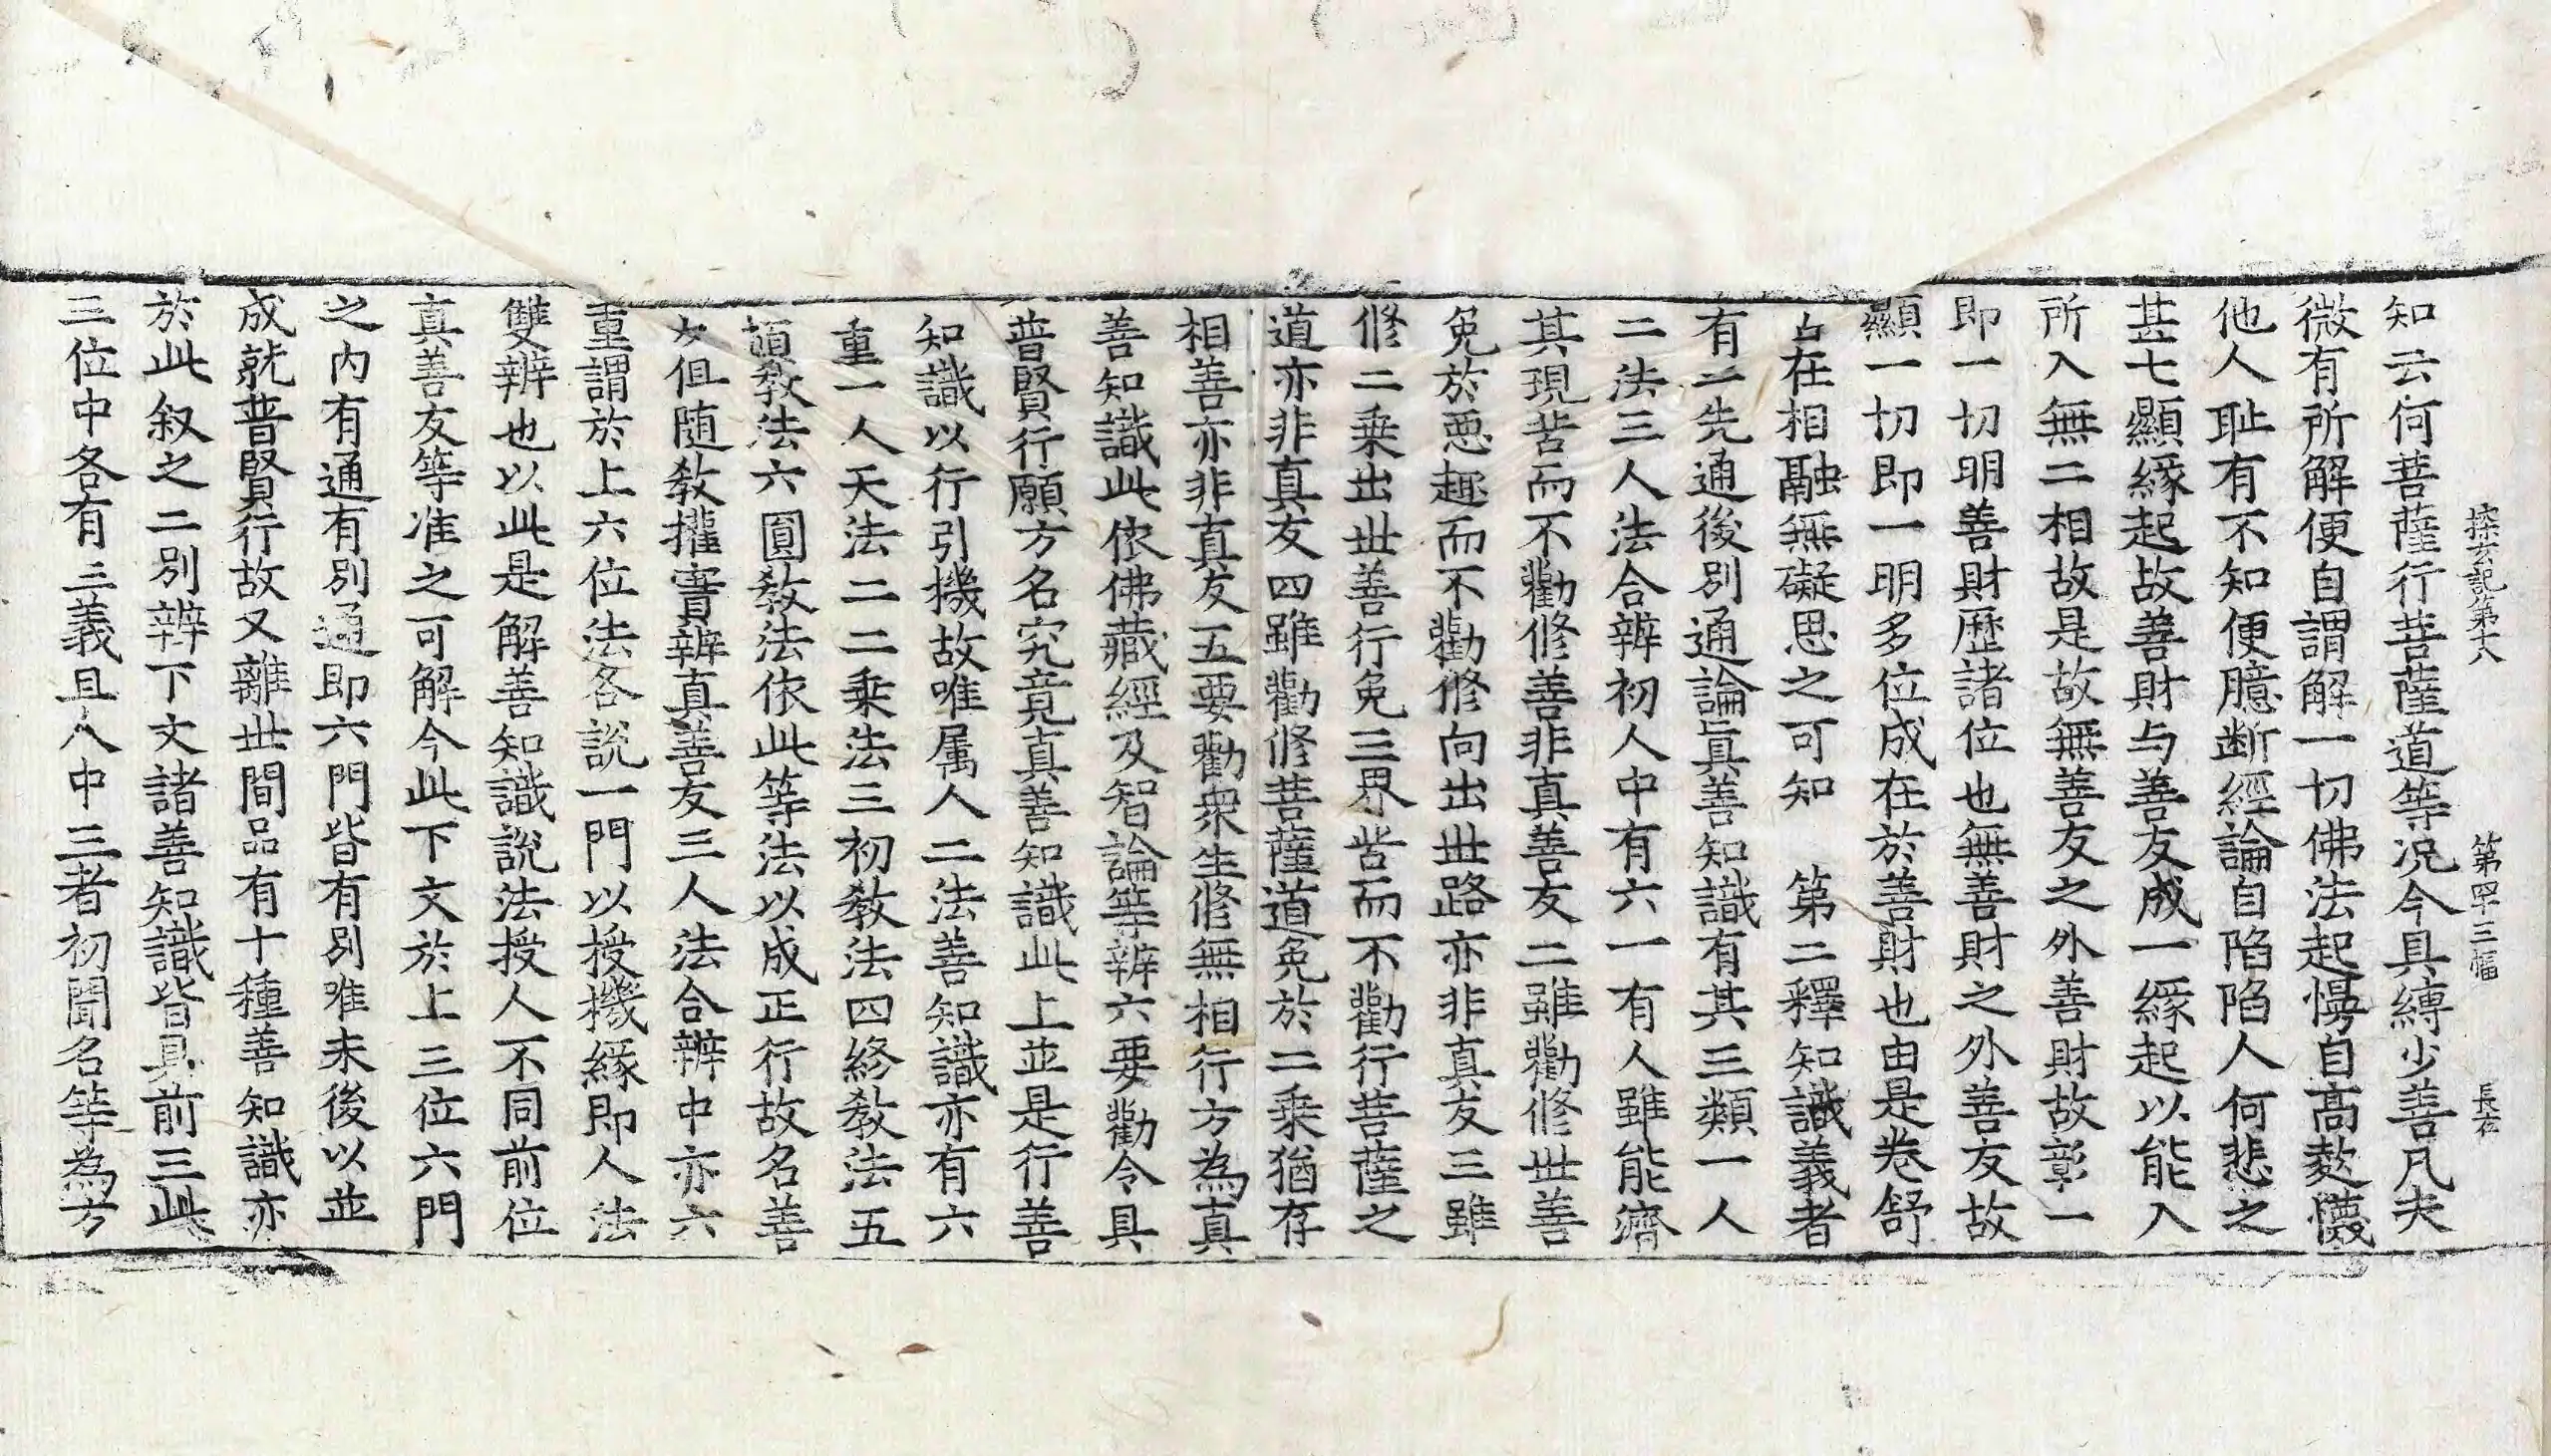 探玄記第十八 第四十三幅 長存
知云何菩薩行菩薩道等况今具縛少善凡夫
微有所解便自謂解一切佛法起慢自髙欺懱
他人耻有不知便臆断經論自陷陷人何悲之
甚七顯緣起故善財与善友成一緣起以能入
所入無二相故是故無善友之外善財故彰一
即一切明善財歷諸位也無善財之外善友故
顯一切即一明多位成在於善財也由是卷舒
在相融無礙思之可知 第二釋知識義者
有二先通後別通論真善知識有其三類一人
二法三人法合辨初人中有六一有人雖能濟
其現苦而不勸修善非真善友二雖勸修世善
免於惡趣而不勸修向出世路亦非真友三雖
修二乗出世善行免三界苦而不勸行菩薩之
道亦非真友四雖勸修菩薩道免於二乗猶存
相善亦非真友五要勸衆生修無相行方為真
善知識此依佛藏經及智論等辨六要勸令具
普賢行願方名究竟真善知識此上並是行善
知識以行引機故唯属人二法善知識亦有六
重一人天法二二乗法三初教法四終教法五
頓教法六圓教法依此等法以成正行故名善
友但随教攉實辨真善友三人法合辨中亦六
重謂於上六位法各說一門以授機緣即人法
雙辨也以此是解善知識說法授人不同前位
真善友等准之可解今此下文於上三位六門
之內有通有別通即六門皆有別唯未後以並
成就普賢行故又離世間品有十種善知識亦
於此叙之二別辨下文諸善知識皆具前三此
三位中各有三義且人中三者初聞名等為方